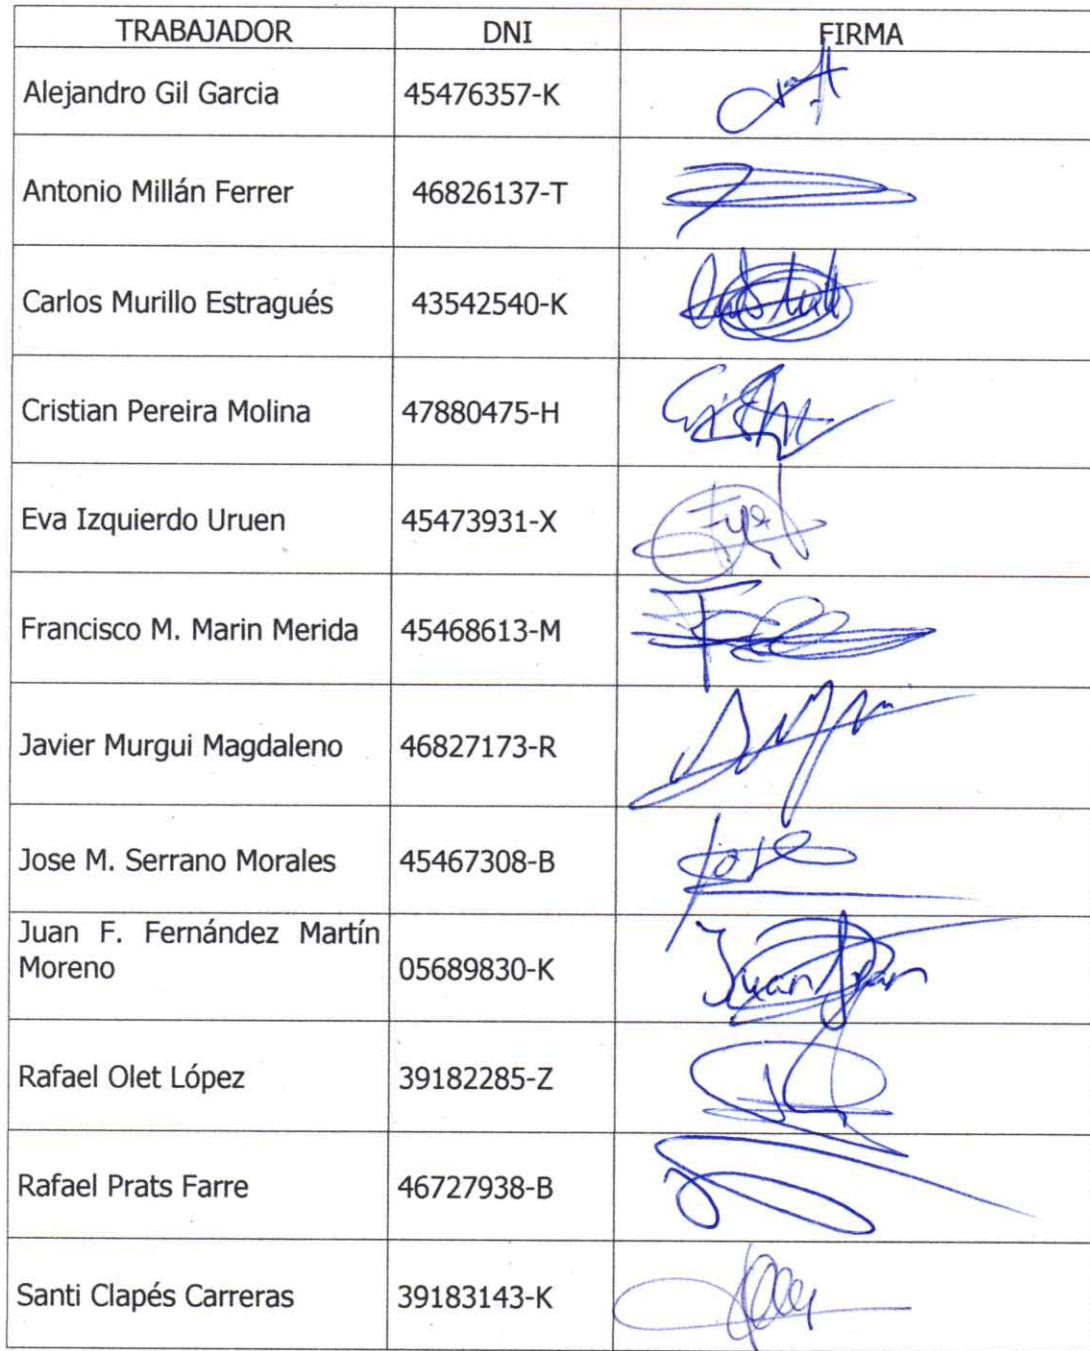 TRABAJADOR DNI FIRMA
Alejandro Gil Garcia 45476357-K
Antonio Millán Ferrer 46826137-T
Carlos Murillo Estragués 43542540-K
Cristian Pereira Molina 47880475-H
Eva Izquierdo Uruen 45473931-X
Francisco M. Marin Merida 45468613-M
Javier Murgui Magdaleno 46827173-R
Jose M. Serrano Morales 45467308-B
Jose
Juan F. Fernández Martín
Moreno 05689830-K
Juan Fran
Rafael Olet López 39182285-Z
Rafael Prats Farre 46727938-B
Santi Clapés Carreras 39183143-K